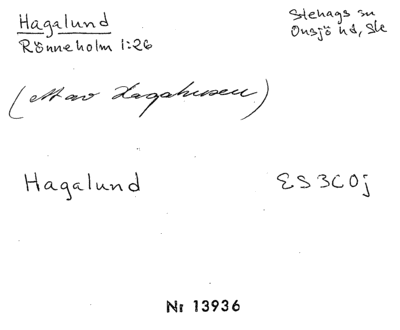 Hagalund
Rönneholm 1:26
Stehags sn
Onsjö hd, Sk
(ett av Hagahusen)
Hagalund
ES 3C0j
Nr 13936